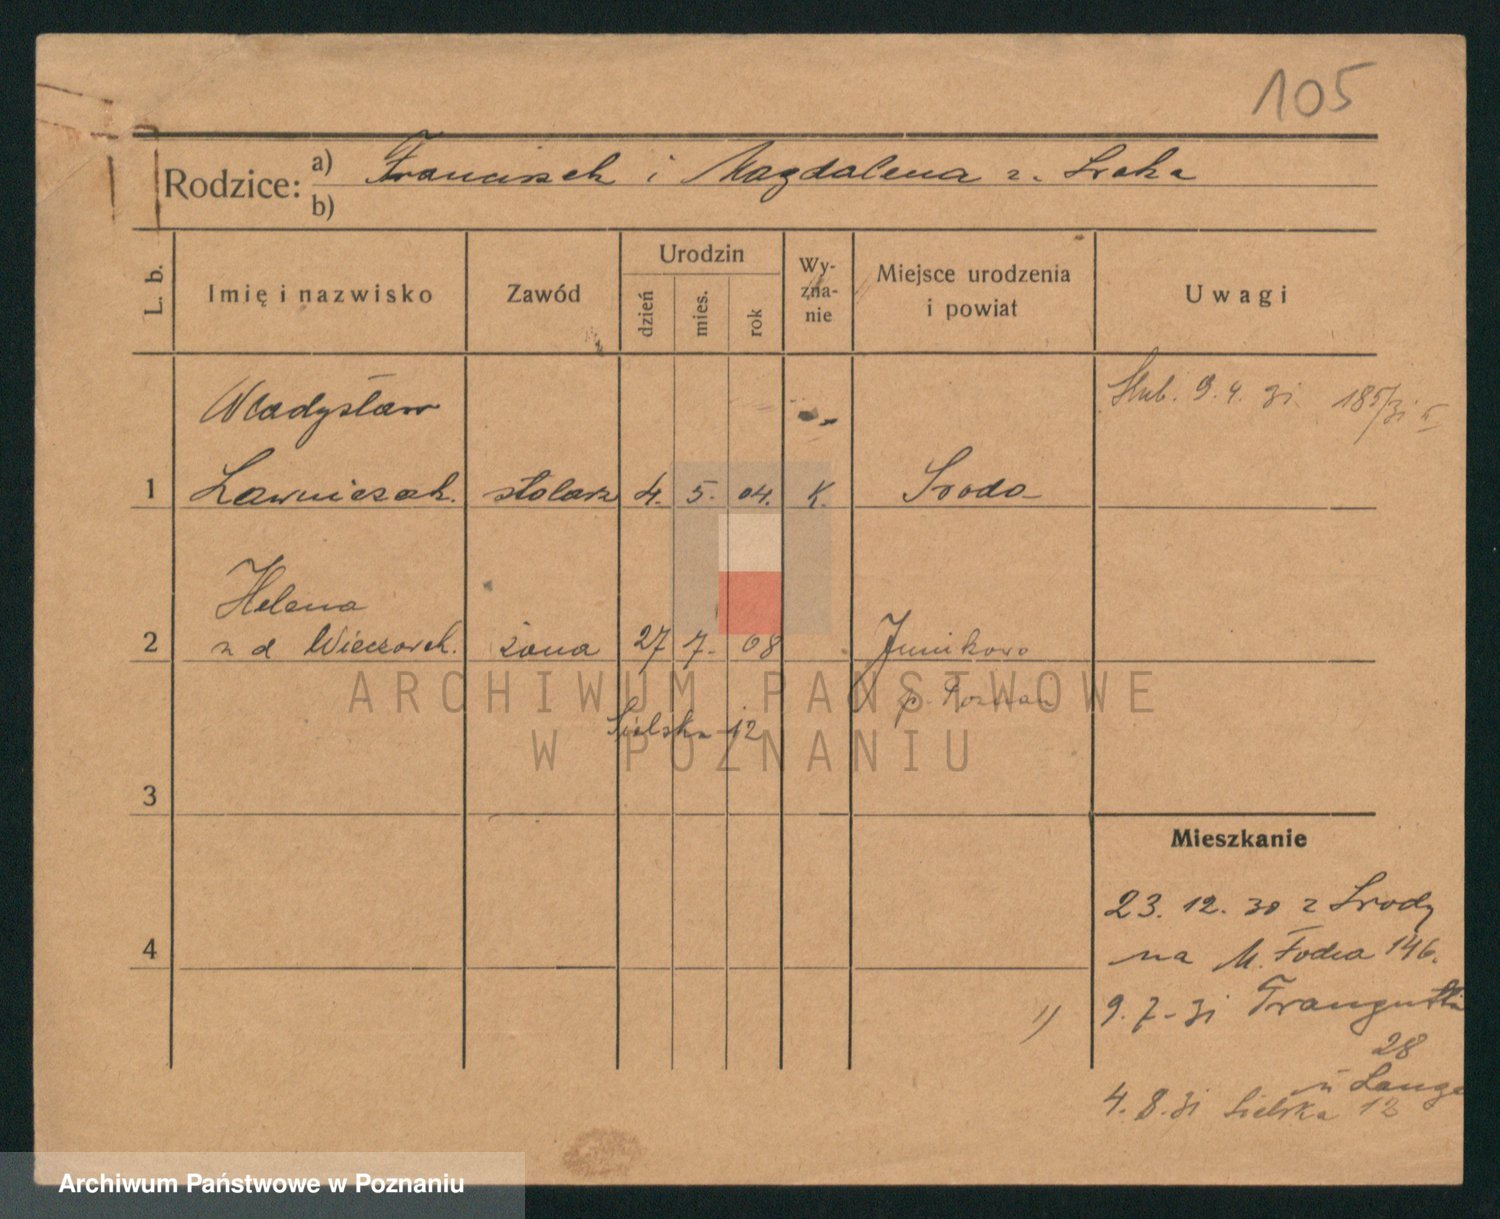 105
Rodzice: a) Franciszek i Magdalena z. Sroka
b)
L. b.
Imię i nazwisko
Zawód
Urodzin
dzień
mies.
rok
Wy-
zna-
nie
Miejsce urodzenia
i powiat
Uwagi
Władysław
Ślub. 9.4.31 185/31
1 Ławniczak. stolarz 4. 5. 04. K. Sroda
Helena
2 z d Wieczorek. żona 27 7. 08 Junikowo
p. Poznań
Sielska 12
3
Mieszkanie
23. 12. 30 z Srody
4
na M. Focha 146.
1) 9. 7. 31 Traugutta
28
u Lange
4. 8. 31 Sielska 12
ARCHIWUM PAŃSTWOWE
W POZNANIU
Archiwum Państwowe w Poznaniu